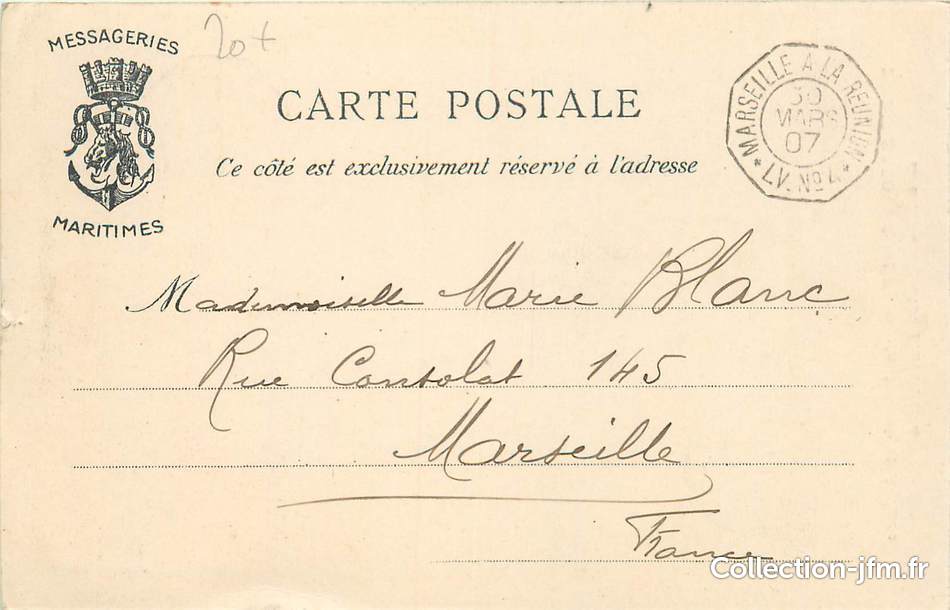 MESSAGERIES
MARITIMES
20+
CARTE POSTALE
Ce côté est exclusivement réservé à l'adresse
MARSEILLE A LA REUNION
30
MARS
07
* L.V. No 4 *
Mademoiselle Marie Blanc
Rue Consolat 145
Marseille
France
Collection-jfm.fr